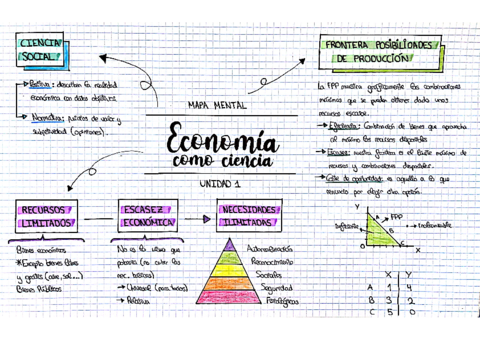 CIENCIA
SOCIAL
Positiva: describen la realidad
económica con datos objetivos.
Normativa: juicios de valor y
subjetividad (opiniones).
MAPA MENTAL
Economía
como ciencia
UNIDAD 1
FRONTERA POSIBILIDADES
DE PRODUCCIÓN
La FPP muestra gráficamente las combinaciones
máximas que se pueden obtener dada unos
recursos escasos.
Eficiencia: Combinación de bienes que aprovecha
al máximo los recursos disponibles
nuestra frontera es el límite máximo de
recursos y combinaciones disponibles.
Coste de oportunidad: es aquello a lo que
renuncio por elegir otra opción.
Y
A
FPP
Ineficiente
B
Inalcanzable
C
X
X Y
A 1 4
B 3 2
C 5 0
RECURSOS
LIMITADOS
Bienes económicos
*Excepto bienes libres
y gratis (aire, sol...)
Bienes Públicos
ESCASEZ
ECONÓMICA
No es lo mismo que
pobreza (no cubrir las
nec. básicas)
Universal (para todos)
Relativa
NECESIDADES
ILIMITADAS
Autorrealización
Reconocimiento
Sociales
Seguridad
Fisiológicas